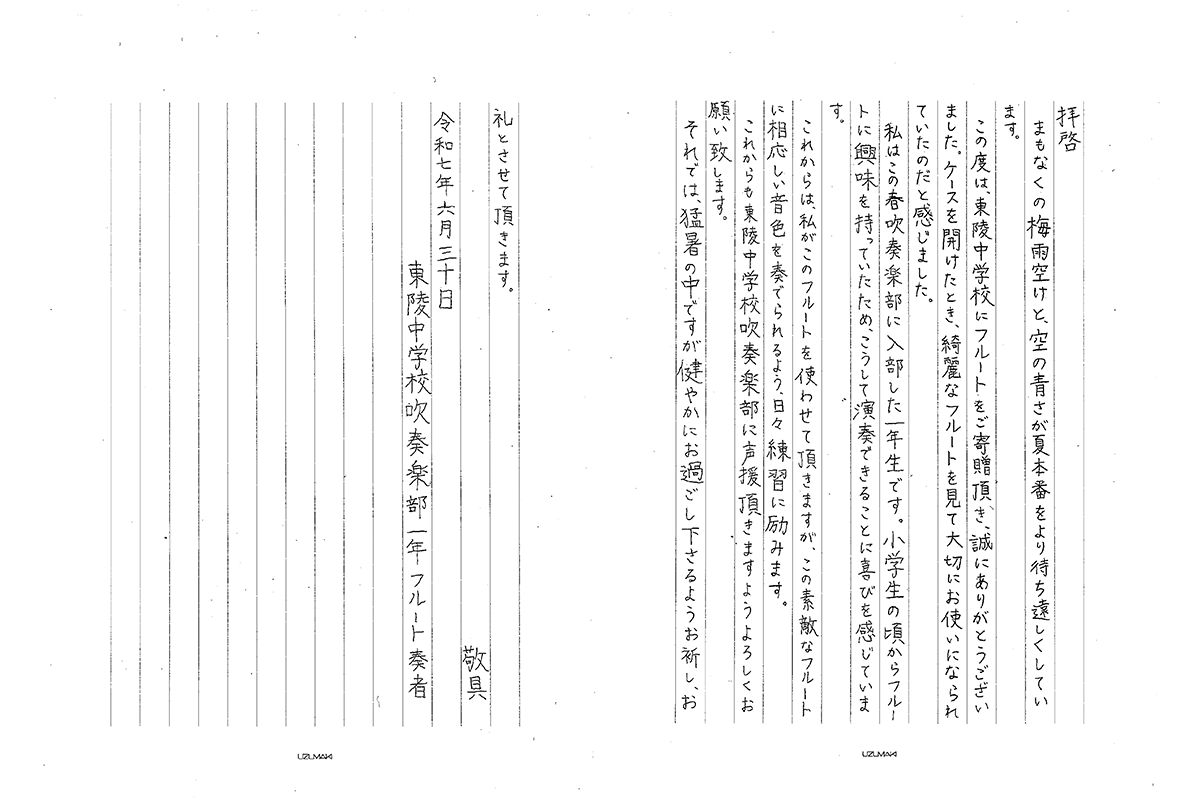 拝啓
まもなくの梅雨空けと、空の青さが夏本番をより待ち遠しくしてい
ます。
この度は、東陵中学校にフルートをご寄贈頂き、誠にありがとうござい
ました。ケースを開けたとき、綺麗なフルートを見て大切にお使いになられ
ていたのだと感じました。
私はこの春吹奏楽部に入部した一年生です。小学生の頃からフルー
トに興味を持っていたため、こうして演奏できることに喜びを感じていま
す。
これからは、私がこのフルートを使わせて頂きますが、この素敵なフルート
に相応しい音色を奏でられるよう、日々練習に励みます。
これからも東陵中学校吹奏楽部に声援頂きますようよろしくお
願い致します。
それでは、猛暑の中ですが健やかにお過ごし下さるようお祈し、お
UZUMAKI
礼とさせて頂きます。
敬具
令和七年六月三十日
東陵中学校吹奏楽部一年フルート奏者
UZUMAKI